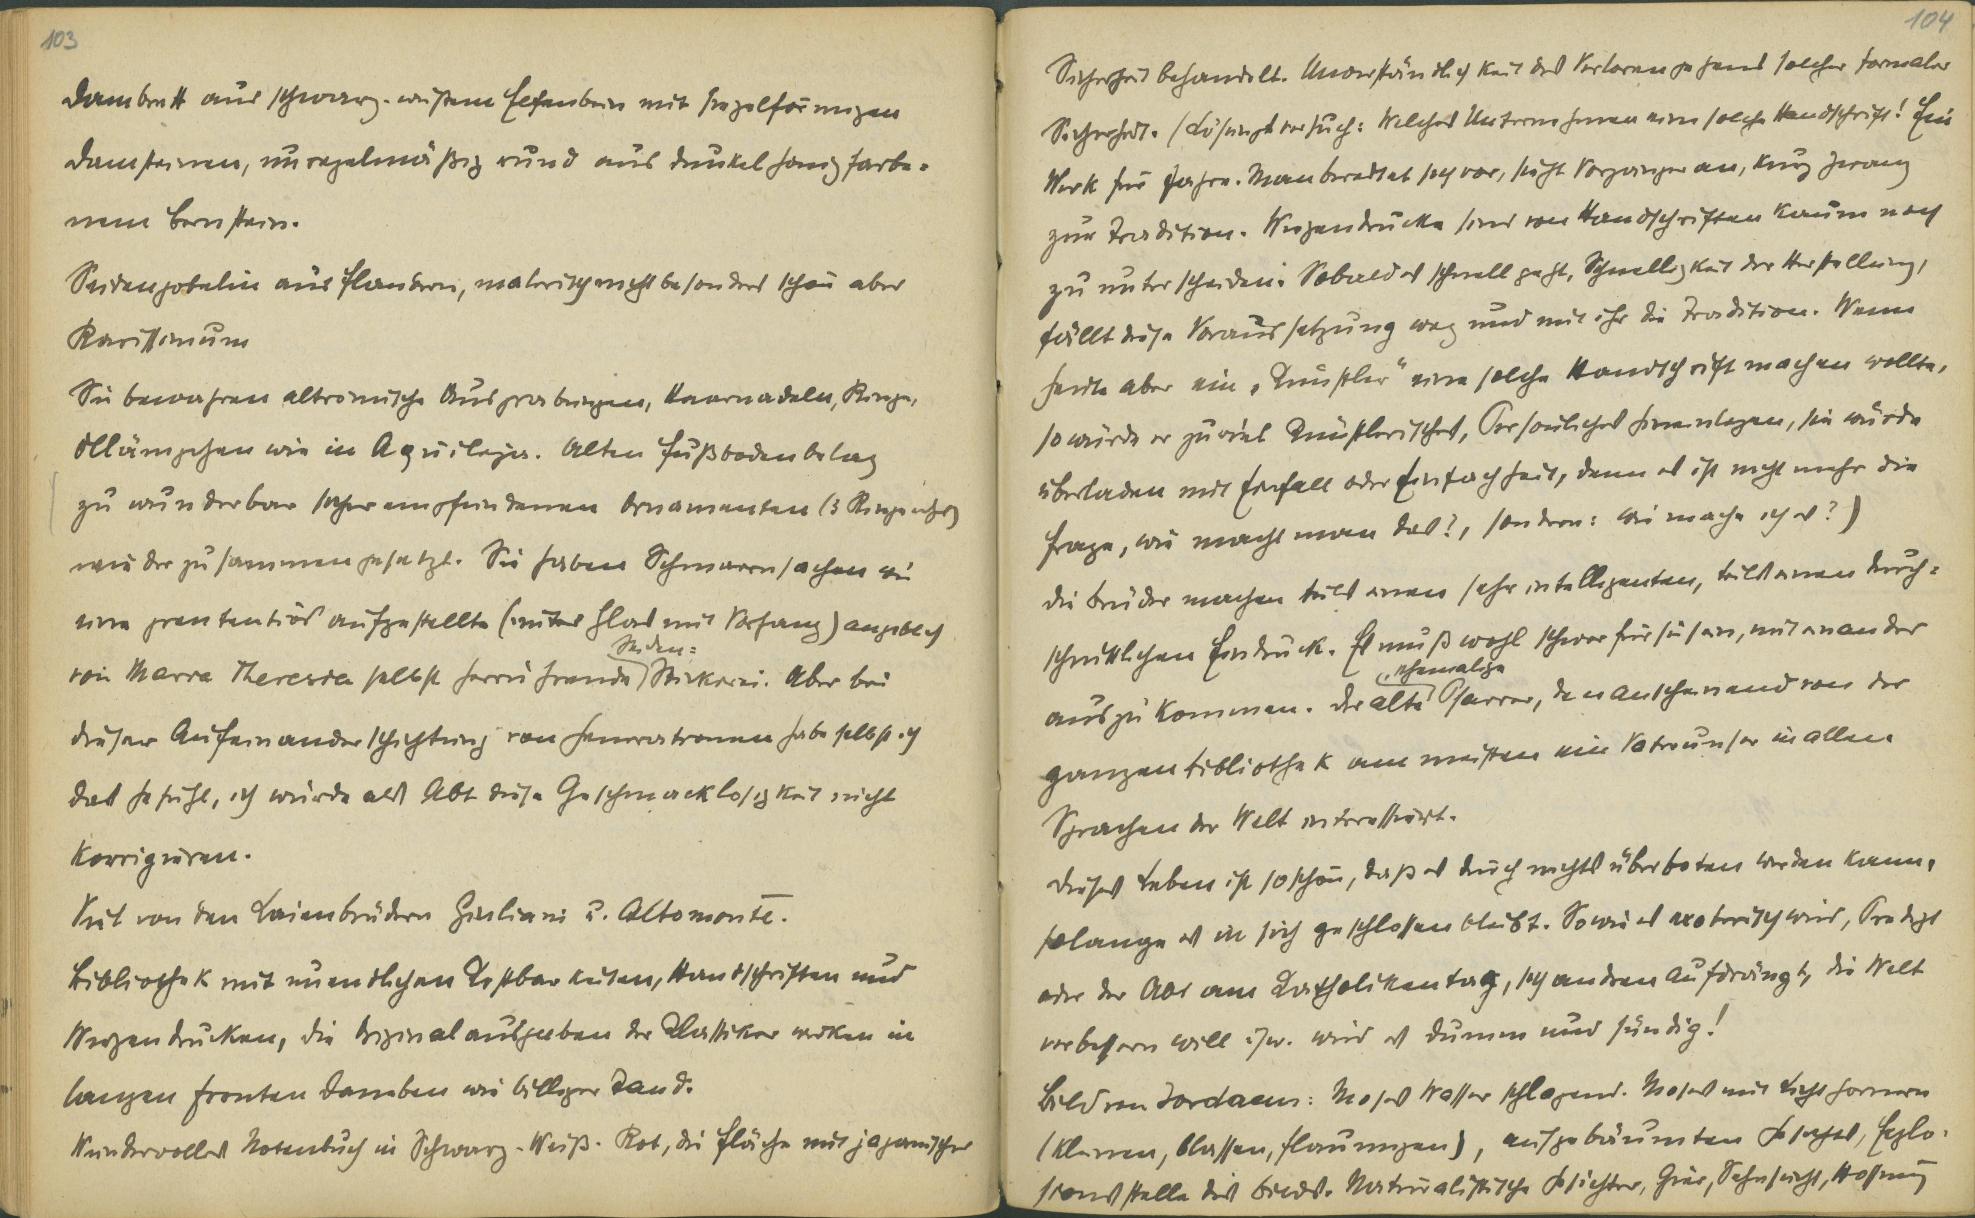 103
Dambrett aus schwarz-weißem Elfenbein mit kegelförmigen
Damsteinen, unregelmäßig rund aus dunkel honigfarbe-
nem Bernstein.
Seidengobelin aus Flandern, malerisch nicht besonders schön aber
Rarissimum
Sie bewahren altrömische Ausgrabungen, Haarnadeln, Ringe,
Öllämpchen wie in Aquileja. Alten Fußbodenbelag
zu wunderbar schön empfundenen Ornamenten (3 Ringe
wieder zusammengesetzt. Sie haben Schmarrnsachen wie
eine prententiös aufgestellte (unter Glas mit Vorhang) angeblich
von Maria Theresia selbst herrührende Seiden-
Stickerei. Aber bei
dieser Aufeinanderschichtung von Generationen habe selbst ich
das Gefühl, ich würde als Abt diese Geschmacklosigkeit nicht
korrigieren.
Viel von den Laienbrüdern Giuliani u. Altomonte.
Bibliothek mit unendlichen Kostbarkeiten, Handschriften und
Wiegendrucken, die Originalausgaben der Klassiker wirken in
langen Fronten daneben wie billiger Tand.
Wundervolles Notenbuch in Schwarz-Weiß-Rot, die Fläche mit japanischer
104
Sicherheit behandelt. Unverständlichkeit des Verlorengehens solcher formaler
Sicherheit. (Lösungsversuch: Welches Unternehmen eine solche Handschrift! Ein
Werk für Jahre. Man bereitet sich vor, sieht Vorgänger an, kurz Zwang
zur Tradition. Wiegendrucke sind von Handschriften kaum noch
zu unterscheiden. Sobald es schnell geht, Schnelligkeit der Herstellung,
fällt diese Voraussetzung weg und mit ihr die Tradition. Wenn
heute aber ein „Künstler" eine solche Handschrift machen wollte,
so würde er zuviel Künstlerisches, Persönliches hineinlegen, sie würde
überladen mit Einfall oder Einfachheit, denn es ist nicht mehr die
Frage, wie macht man das?, sondern: wie mache ich es?)
Die Brüder machen teils einen sehr intelligenten, teils einen durch-
schnittlichen Eindruck. Es muß wohl schwer für sie sein, miteinander
auszukommen. Der alte, ehemalige Pfarrer, den anscheinend von der
ganzen Bibliothek am meisten ein Vaterunser in allen
Sprachen der Welt interessiert.
Dieses Leben ist so schön, daß es durch nichts überboten werden kann,
solange es in sich geschlossen bleibt. Sowie es exoterisch wird, Predigt
oder der Abt am Katholikentag, sich andren aufdrängt, die Welt
verbessern will usw. wird es dumm und sündig!
Bild von Jordaens: Moses Wasser schlagend. Moses mit Lichthörnern
(kleinen, blassen, flaumigen), aufgebäumten Gesichts, Explo-
sionsstelle des Bildes. Naturalistische Gesichter, Gier, Sehnsucht, Hoffnung